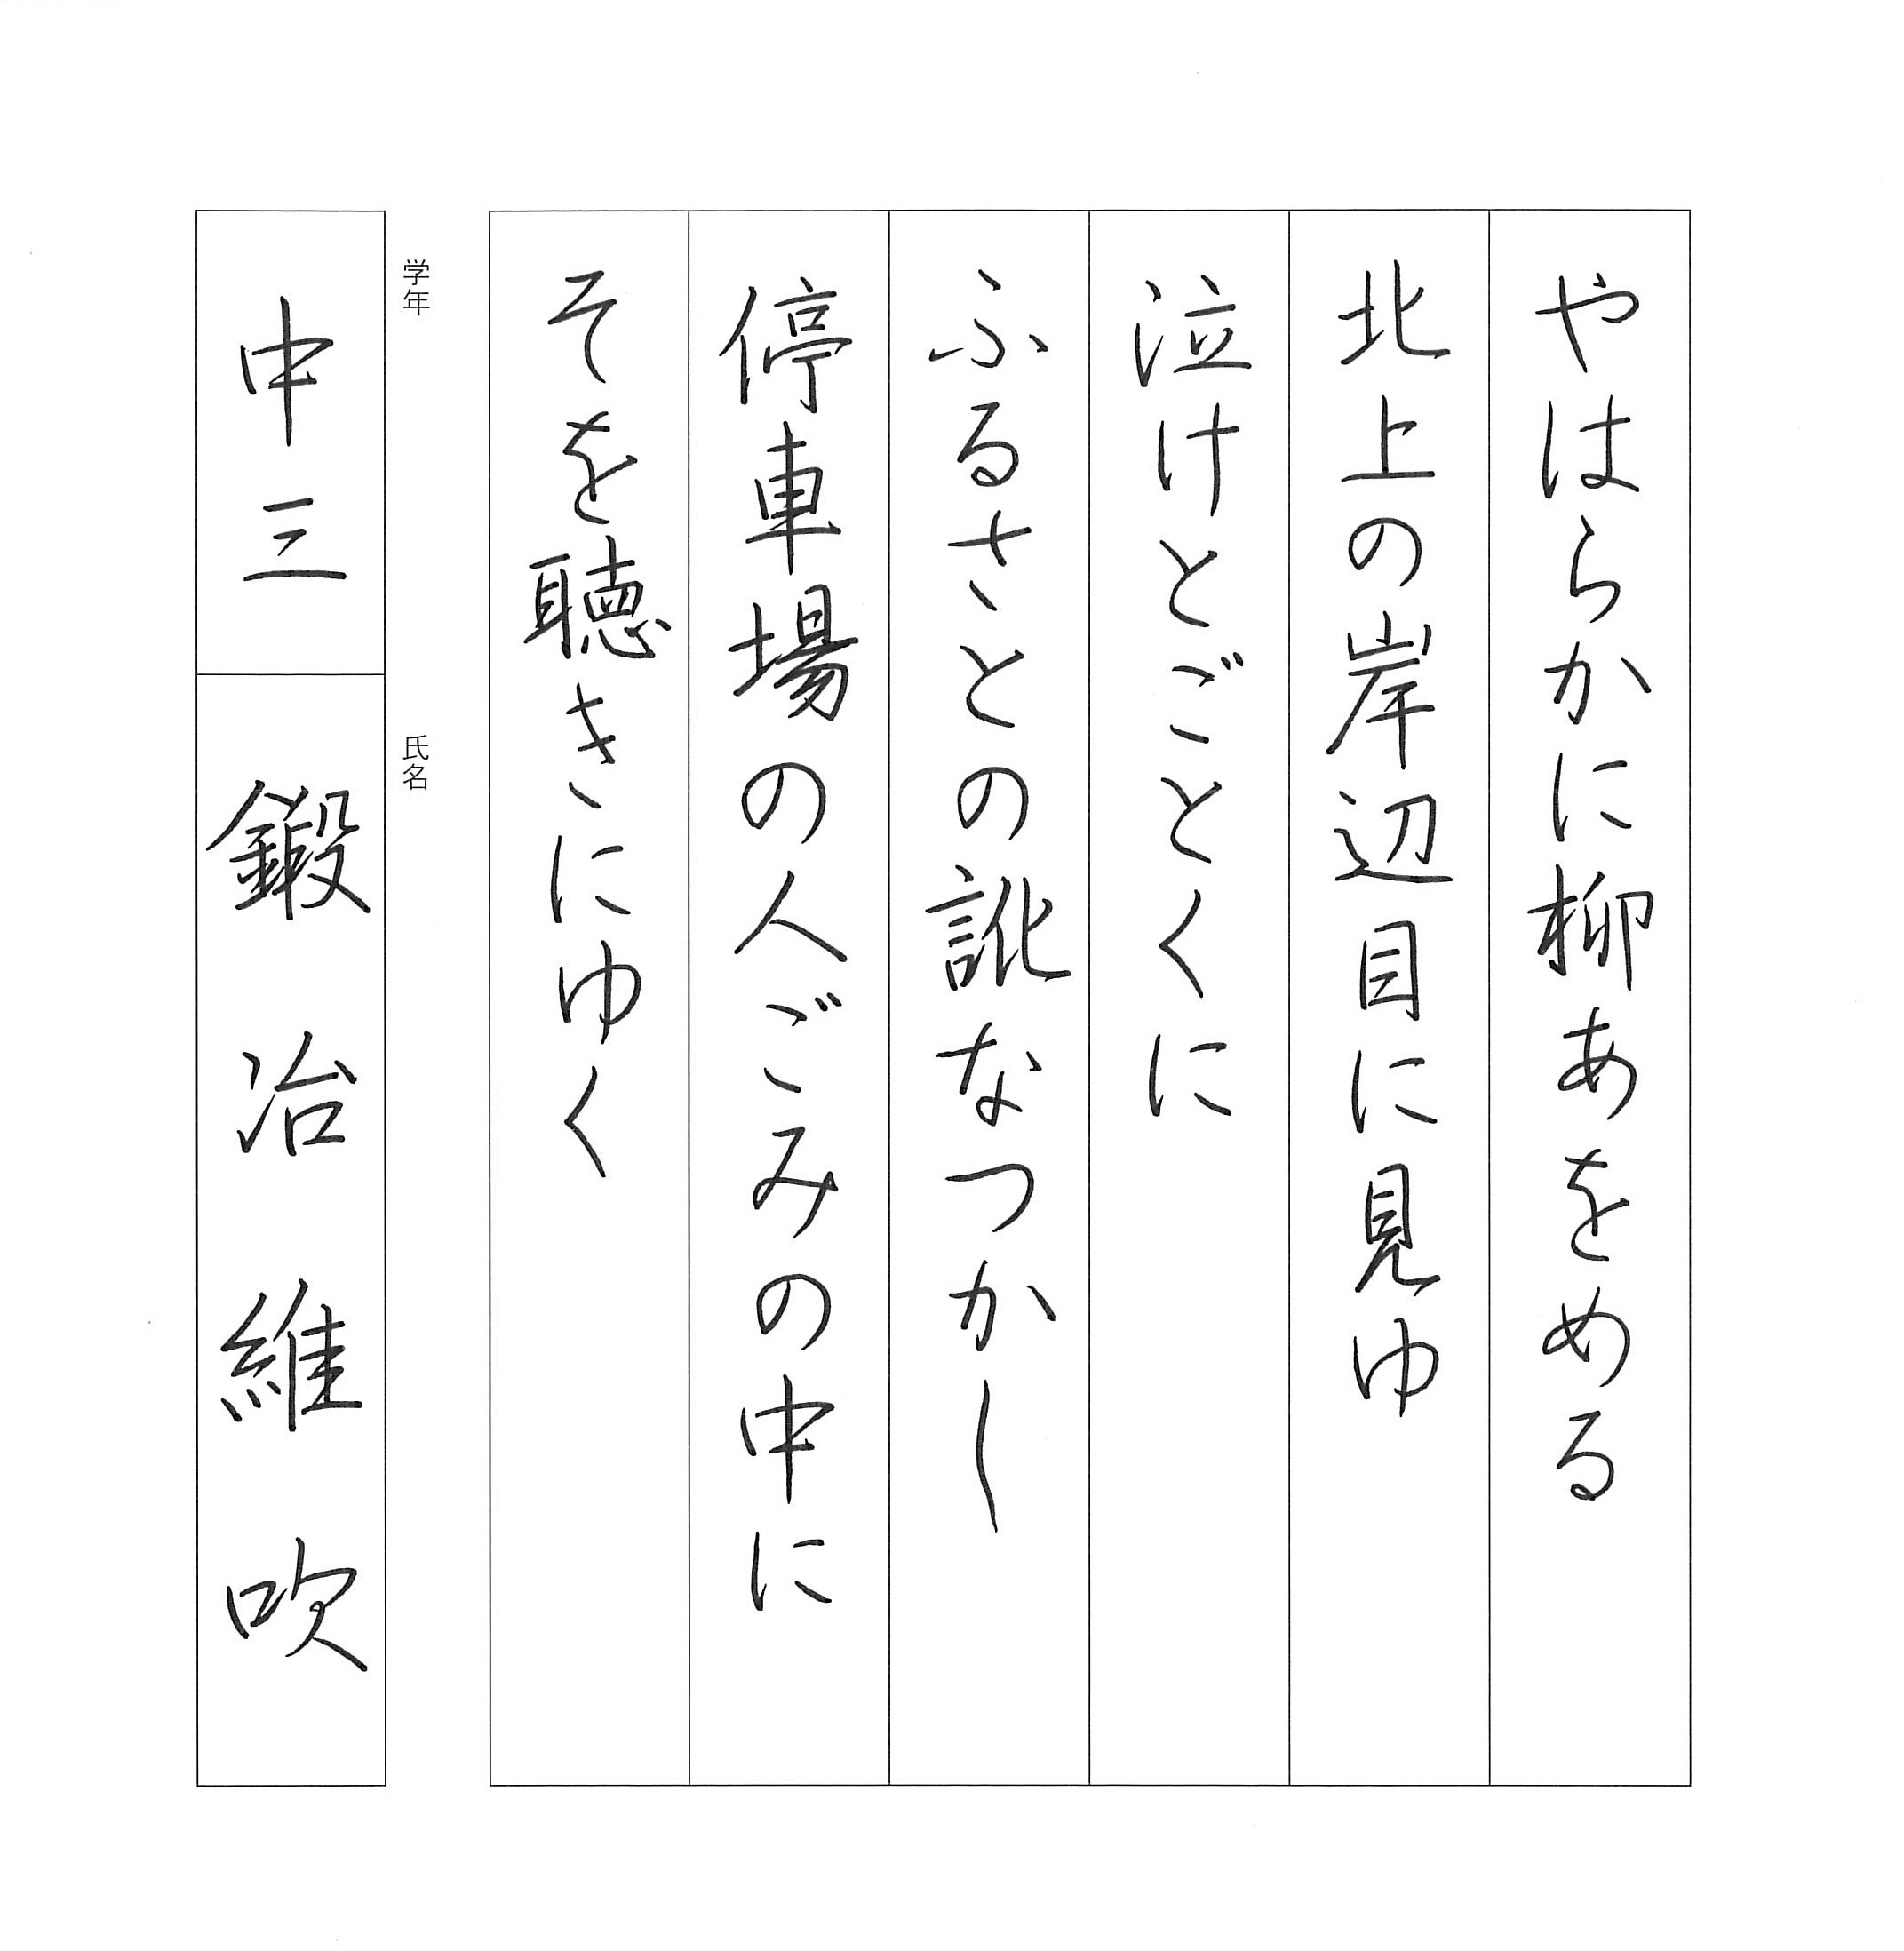 やはらかに柳あをめる
北上の岸辺目に見ゆ
泣けとごとくに
ふるさとの訛なつかし
停車場の人ごみの中に
そを聴きにゆく
学年
中三
氏名
鍛冶維吹